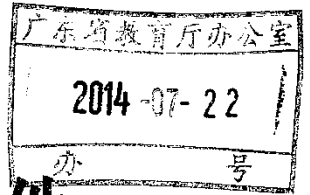 广东省教育厅办公室
2014-07-22
办 号